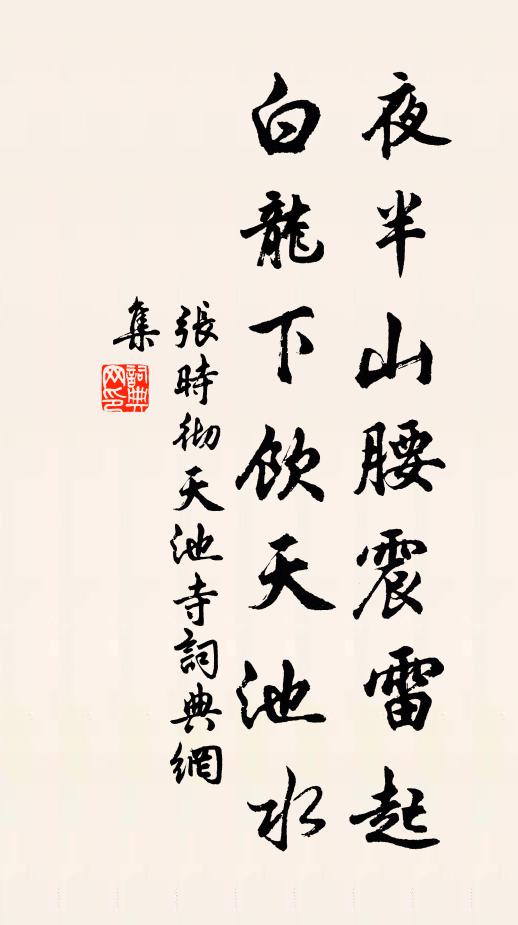 夜半山腰震雷起
白龍下飲天池水
張時彻天池寺詞典網
集
詞典
网印